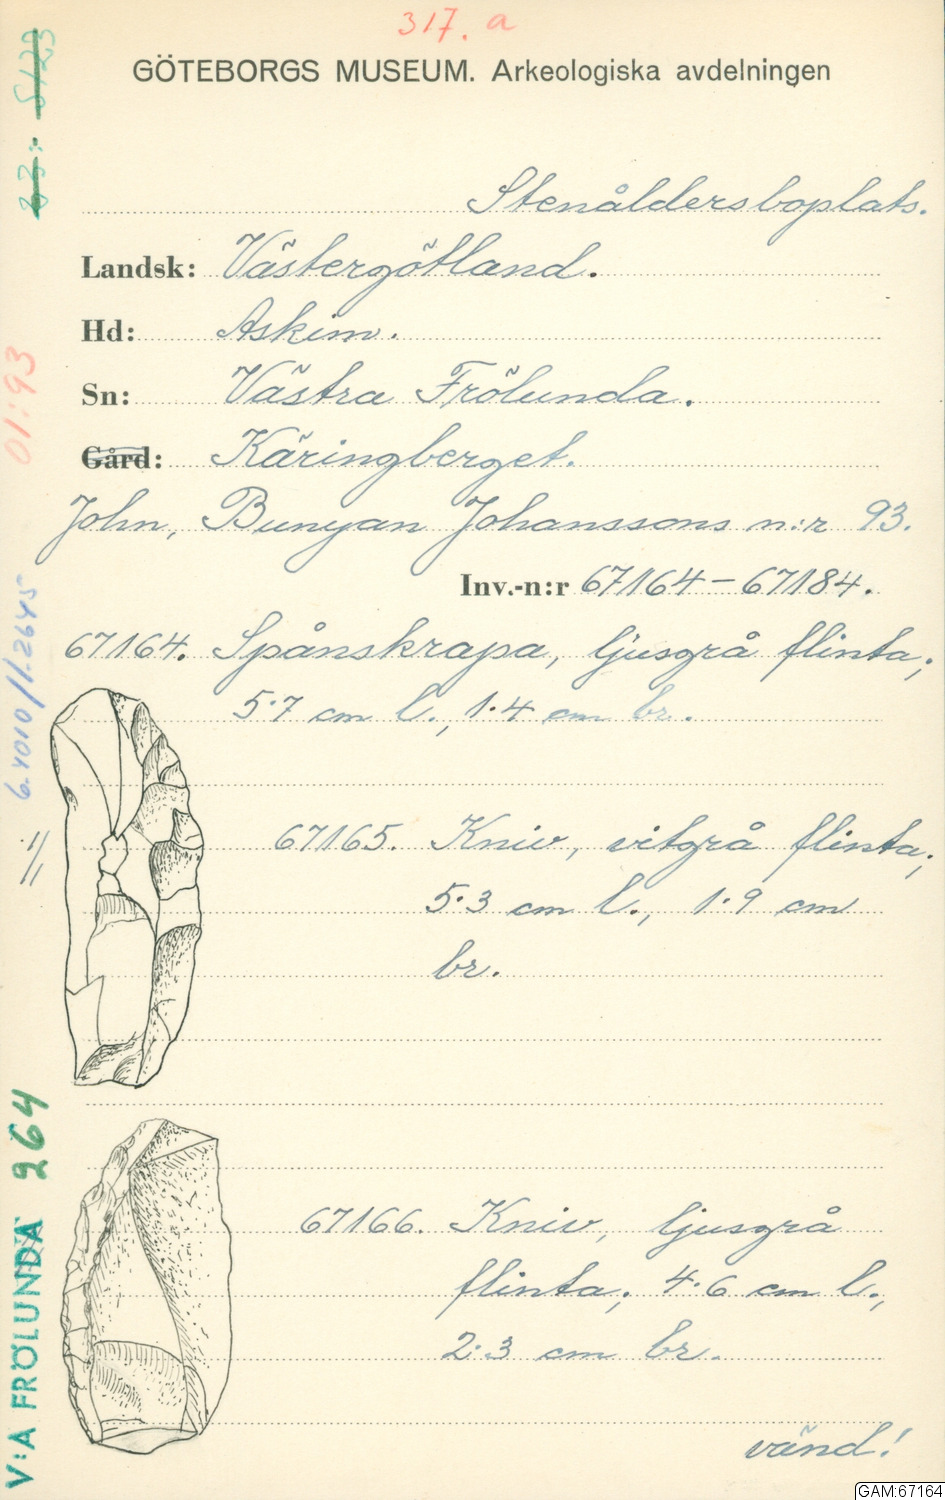 317. a
GÖTEBORGS MUSEUM. Arkeologiska avdelningen
Stenåldersboplats.
Landsk: Västergötland.
Hd: Askim.
Sn: Västra Frölunda.
Gård: Käringberget.
John, Bunyan Johanssons n:r 93.
Inv.-n:r 67164-67184.
67164. Spånskrapa, ljusgrå flinta;
5.7 cm l., 1.4 cm br.
67165. Kniv, vitgrå flinta;
5.3 cm l., 1.9 cm
br.
67166. Kniv, ljusgrå
flinta; 4.6 cm l.,
2.3 cm br.
vänd!
01:93
V:A FRÖLUNDA 264
GAM:67164